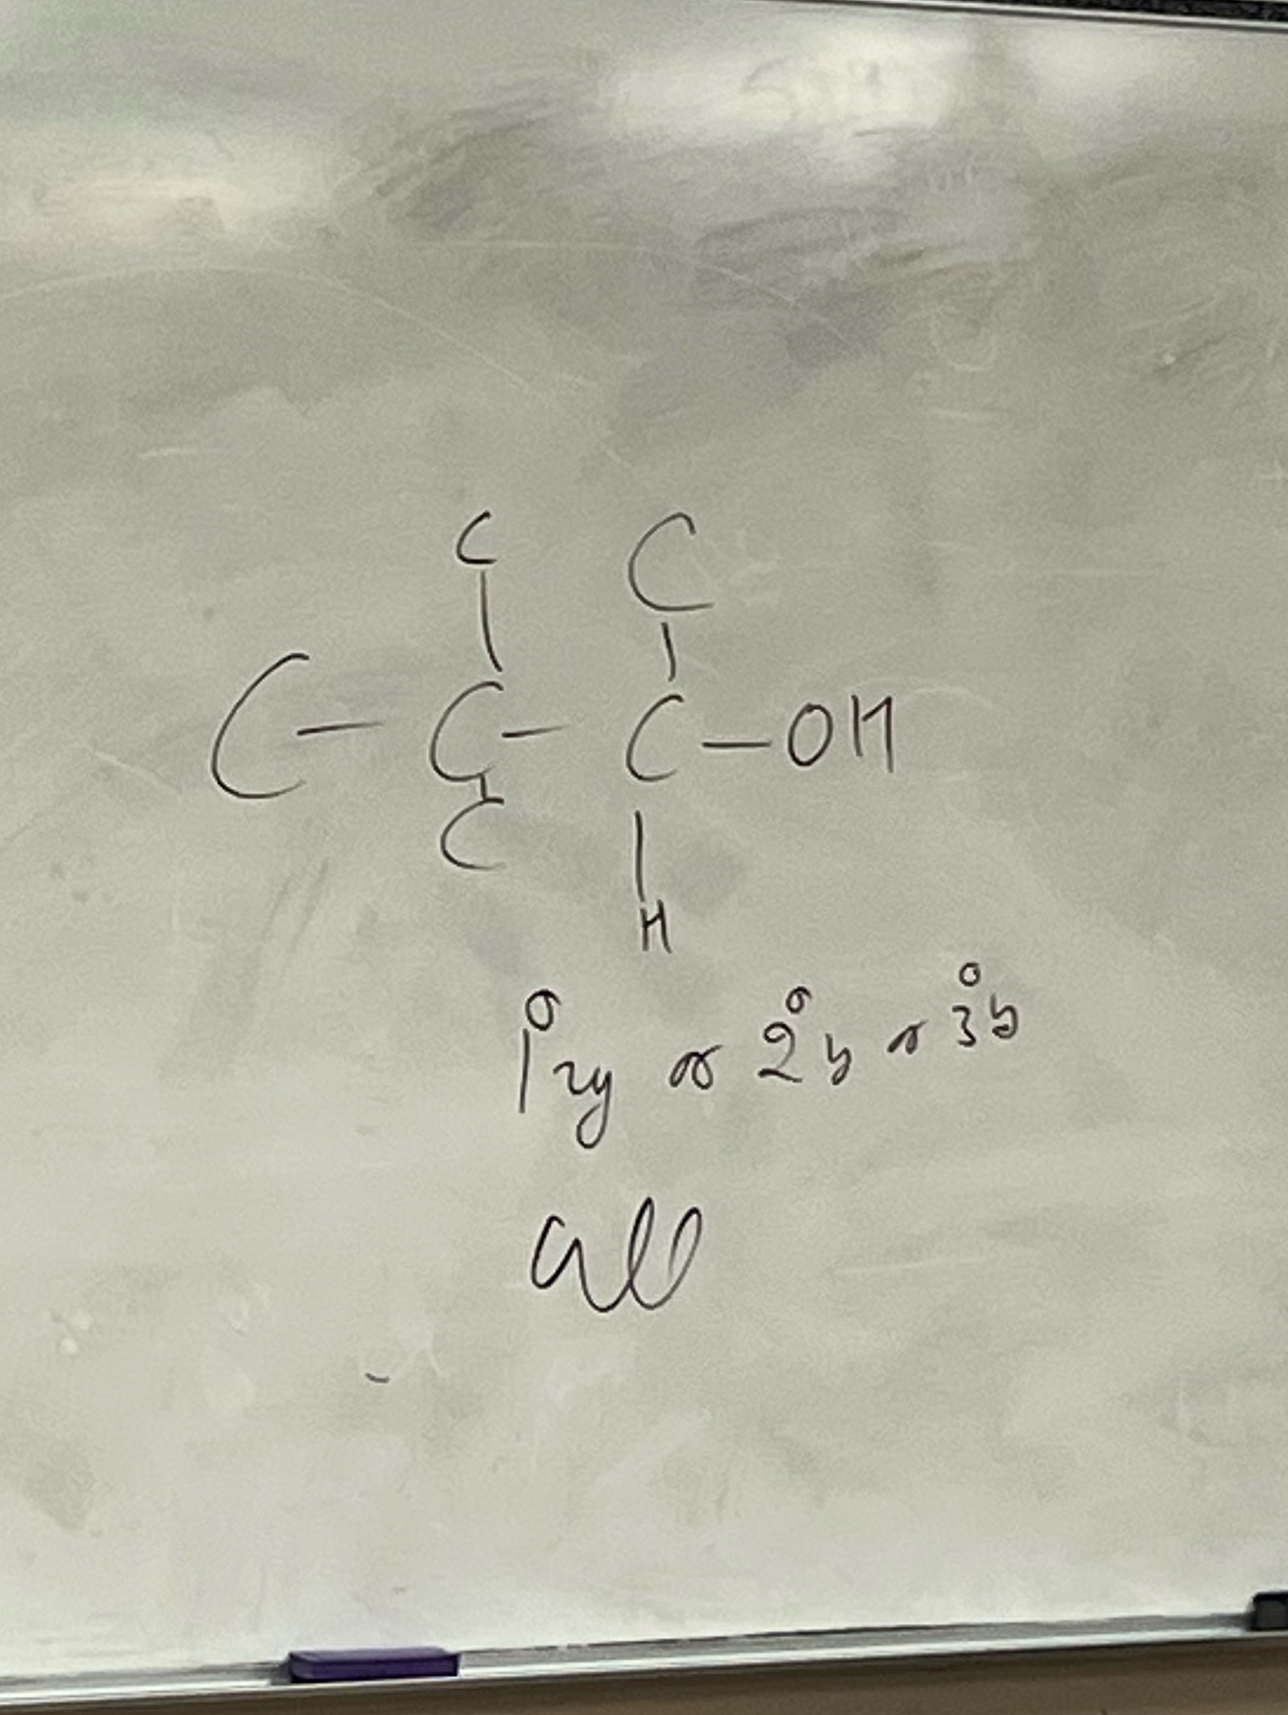 C C
C — C — C — OH
C
H
1°ry or 2°y or 3°y
all